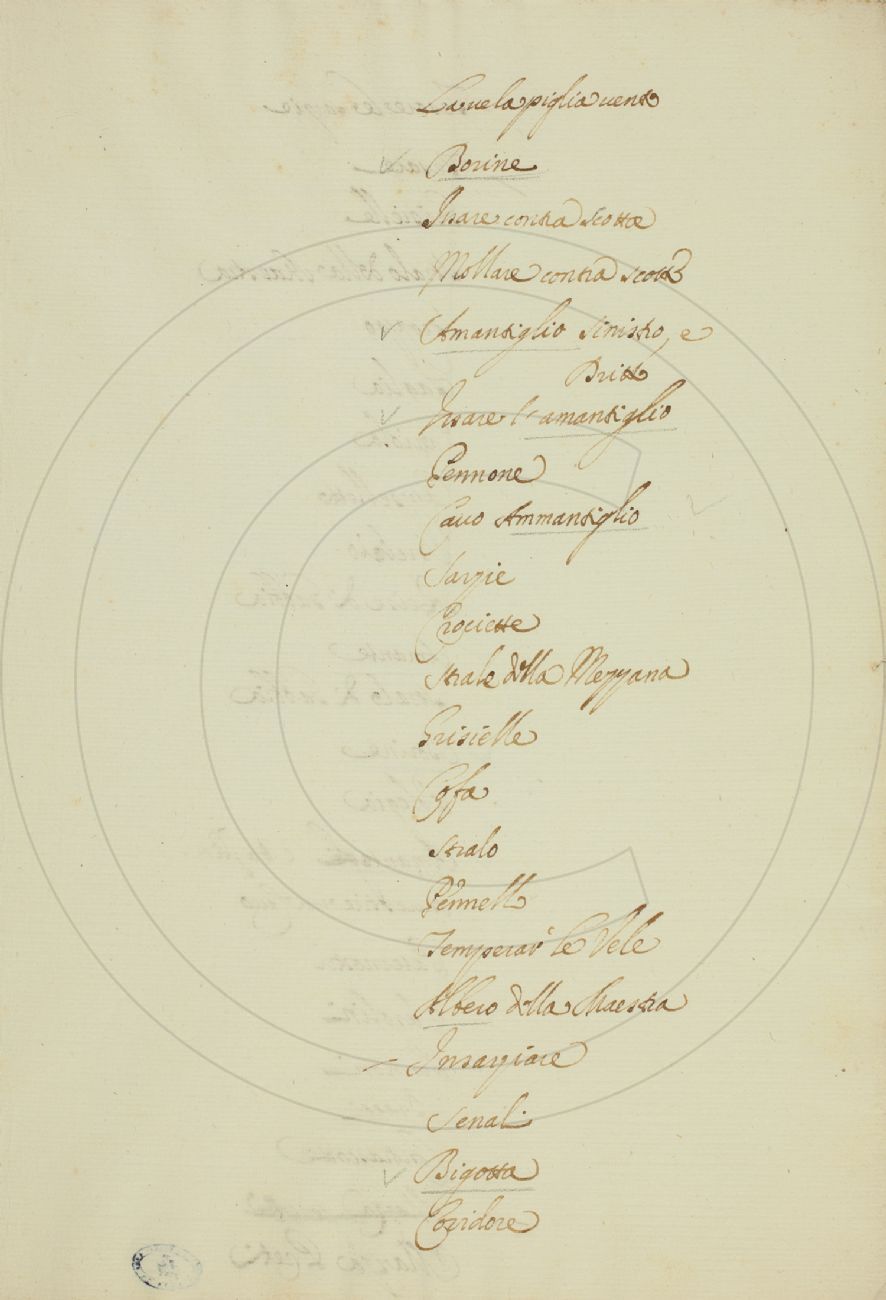 La vela piglia vento
Borine
Issare contra scotta
Mollare contra scotta
Amantiglio sinistro, e
Dritto
Issare l'amantiglio
Pennone
Cavo Ammantiglio
Sarzie
Crociette
Strale della Mezzana
Grisielle
Coffa
Stralo
Pennello
Temperar le Vele
Albero della Maestra
Insarziare
Senali
Bigotta
Coridore